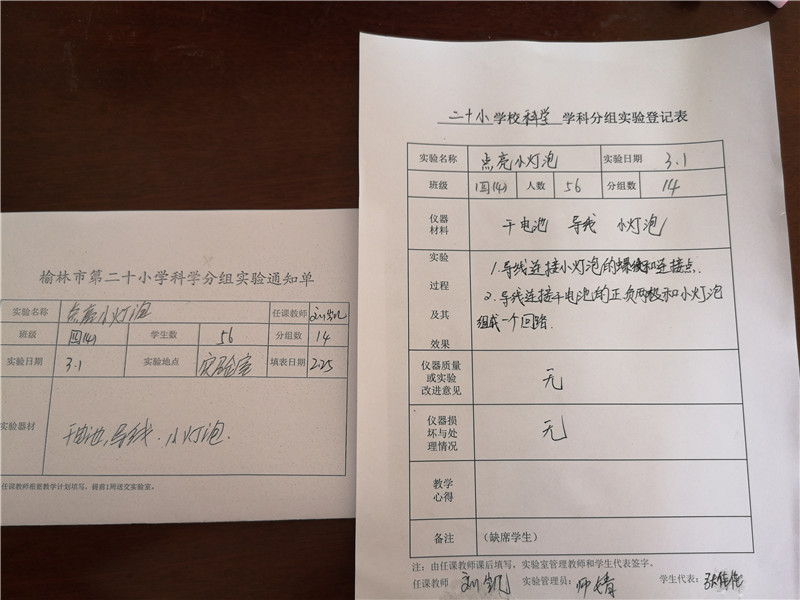 榆林市第二十小学科学分组实验通知单
实验名称 点亮小灯泡 任课教师 刘凯
班级 四(4) 学生数 56 分组数 14
实验日期 3.1 实验地点 实验室 填表日期 2.25
实验器材 干电池,导线.小灯泡.
任课教师根据教学计划填写,提前1周送交实验室。
二十小学校科学 学科分组实验登记表
实验名称 点亮小灯泡 实验日期 3.1
班级 四(4) 人数 56 分组数 14
仪器
材料
干电池 导线 小灯泡
实验
过程
及其
效果
1.导线连接小灯泡的螺纹和连接点.
2.导线连接干电池的正负两极和小灯泡
组成一个回路.
仪器质量
或实验
改进意见
无
仪器损
坏与处
理情况
无
教学
心得
备注 (缺席学生)
注:由任课教师课后填写,实验室管理教师和学生代表签字。
任课教师 刘凯 实验管理员: 师婧 学生代表: